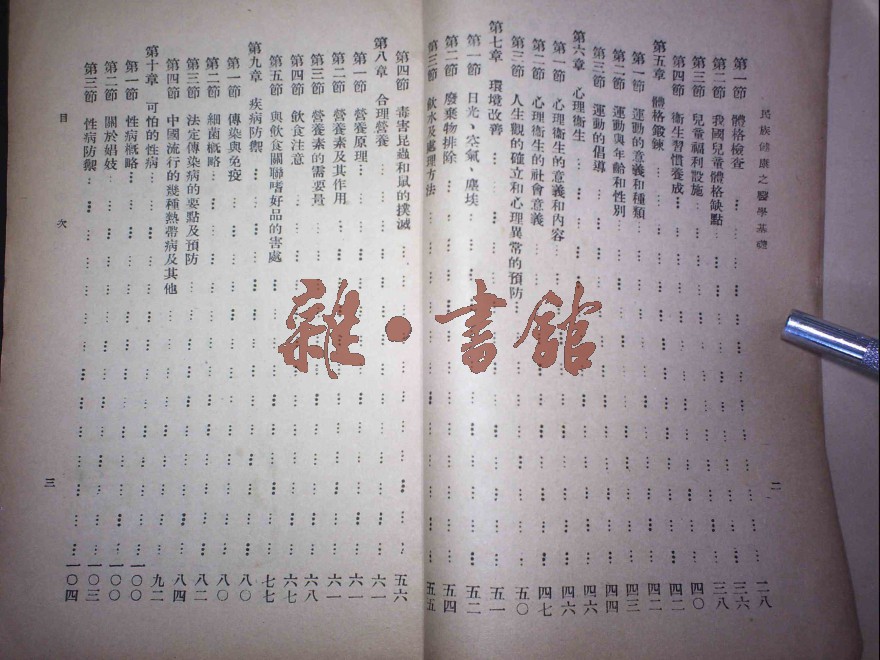 民族健康之醫學基礎
第一節 體格檢查 二八
第二節 我國兒童體格缺點 三六
第三節 兒童福利設施 三八
第四節 衞生習慣養成 四〇
第五章 體格鍛鍊 四二
第一節 運動的意義和種類 四二
第二節 運動與年齡和性別 四三
第三節 運動的倡導 四四
第六章 心理衞生 四六
第一節 心理衞生的意義和內容 四六
第二節 心理衞生的社會意義 四七
第三節 人生觀的確立和心理異常的預防 五〇
第七章 環境改善 五一
第一節 日光、空氣、塵埃 五二
第二節 廢棄物排除 五四
第三節 飲水及處理方法 五五
二
第四節 毒害昆蟲和鼠的撲滅 五六
第八章 合理營養 六一
第一節 營養原理 六一
第二節 營養素及其作用 六一
第三節 營養素的需要量 六八
第四節 飲食注意 六七
第五節 與飲食關聯嗜好品的害處 七七
第九章 疾病防禦 八〇
第一節 傳染與免疫 八〇
第二節 細菌概略 八二
第三節 法定傳染病的要點及預防 八四
第四節 中國流行的幾種熱帶病及其他 九二
第十章 可怕的性病 一〇〇
第一節 性病概略 一〇〇
第二節 關於娼妓 一〇三
第三節 性病防禦 一〇四
目次
三
雜·書館